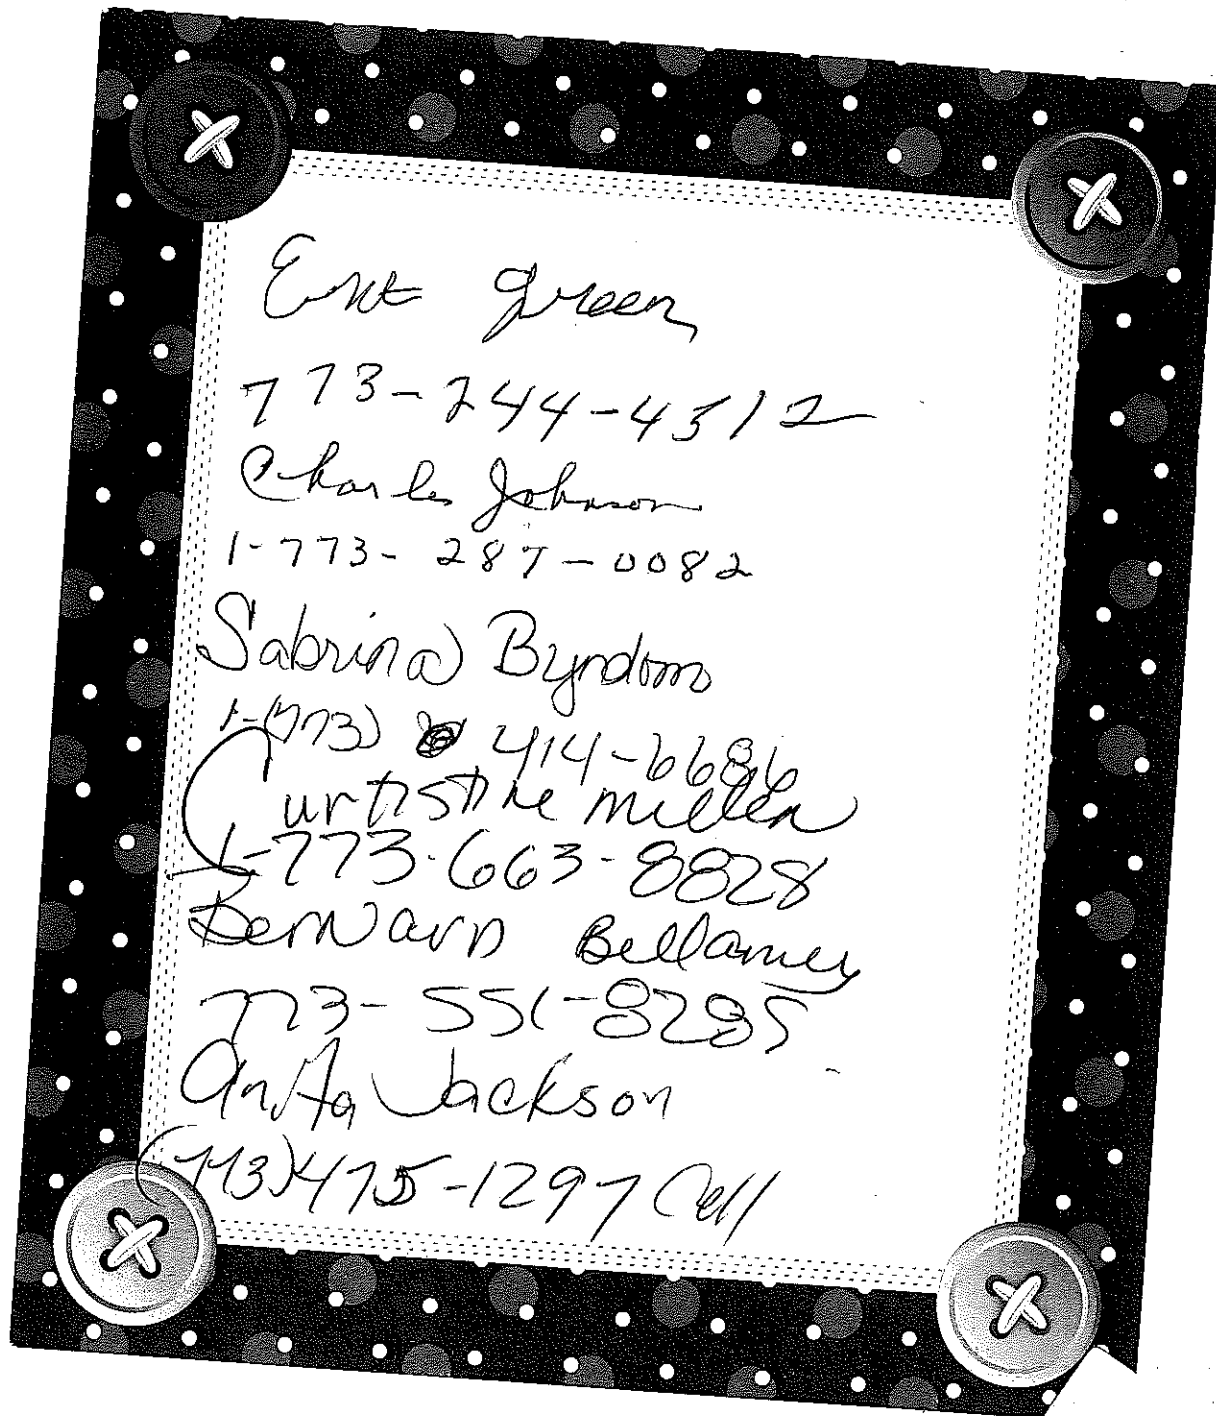 Green
773-244-4512
Charles Johnson
1-773-287-0082
Sabrina Byndom
1-(773) 414-6686
Curtistine Miller
1-773-663-8828
Bernard Bellamy
773-551-8285
Anita Jackson
(773)475-1297 Cell